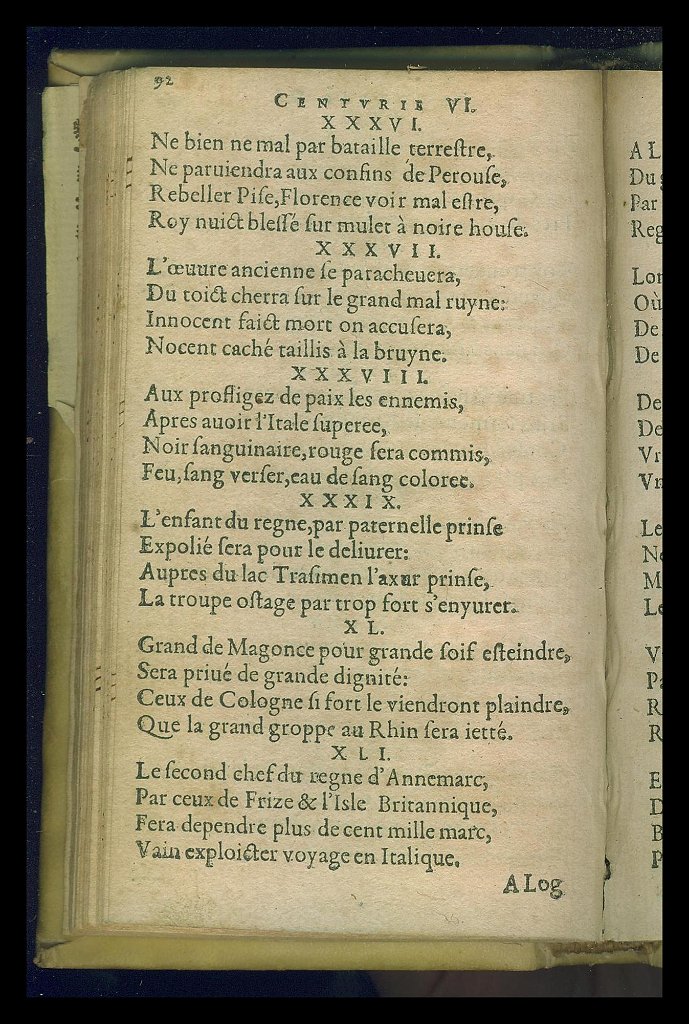 92
CENTVRIE VI.
XXXVI.
Ne bien ne mal par bataille terreſtre,
Ne paruiendra aux confins de Perouſe,
Rebeller Piſe, Florence voir mal eſtre,
Roy nuict bleſſé ſur mulet à noire houſe.
XXXVII.
L'œuure ancienne ſe paracheuera,
Du toict cherra ſur le grand mal ruyne:
Innocent faict mort on accuſera,
Nocent caché taillis à la bruyne.
XXXVIII.
Aux profligez de paix les ennemis,
Apres auoir l'Itale ſuperee,
Noir ſanguinaire, rouge ſera commis,
Feu, ſang verſer, eau de ſang coloree.
XXXIX.
L'enfant du regne, par paternelle prinſe
Expolié ſera pour le deliurer:
Aupres du lac Traſimen l'axur prinſe,
La troupe oſtage par trop fort s'enyurer.
XL.
Grand de Magonce pour grande ſoif eſteindre,
Sera priué de grande dignité:
Ceux de Cologne ſi fort le viendront plaindre,
Que la grand groppe au Rhin ſera ietté.
XLI.
Le ſecond chef du regne d'Annemarc,
Par ceux de Frize & l'Isle Britannique,
Fera dependre plus de cent mille marc,
Vain exploicter voyage en Italique.
A Log
A L
Du
Par
Reg
Lor
Où
De
De
De
De
Vr
Vn
Le
Ne
M
Le
V
Pa
R
R
E
D
B
P